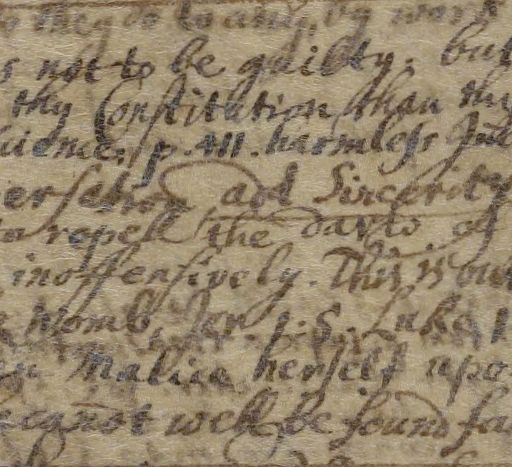 to any, by word
not to be guilty. but
thy Constitution than thy
p. 111. harmless
and Sincerity
repell the darts of
inoffensively. This is our
womb, Jer. 1. 5. Luke 1
Malice herself upo
cannot well be found fa